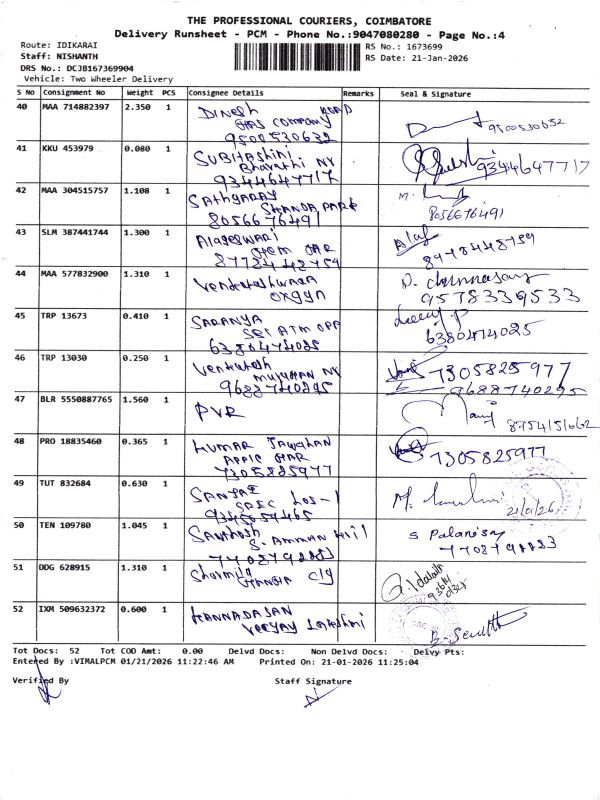 THE PROFESSIONAL COURIERS, COIMBATORE
Delivery Runsheet - PCM - Phone No.:9047080280 - Page No.:4
Route: IDIKARAI
RS No.: 1673699
Staff: NISHANTH
RS Date: 21-Jan-2026
DRS No.: DCJB167369904
Vehicle: Two Wheeler Delivery
S No Consignment No Weight PCS Consignee Details Remarks Seal & Signature
40 MAA 714882397 2.350 1 Dinesh
GAS Company
9500530632 9500530652
41 KKU 453979 0.080 1 SUBHASHINI
Bharathi NY
9344647717 9344647717
42 MAA 304515757 1.108 1 Sathyaray
SHANDA PARK
8056676491 8056676491
43 SLM 387441744 1.300 1 Alageswari
8778448759
44 MAA 577832900 1.310 1 Venkateshwara
D. chinnasamy
9578339533
45 TRP 13673 0.410 1 SARANYA
SBI ATM OPP
6380474025 6380474025
46 TRP 13030 0.250 1 Venkatesh
MURUGAN NY 7305825977
9688740295 9688740295
47 BLR 5550887765 1.560 1 PVR
8754151662
48 PRO 18835460 0.365 1 KUMAR JAWAHAN
7305825977 7305825977
49 TUT 832684 0.630 1 SANJAI
21/01/26
50 TEN 109780 1.045 1 Santhosh
S. AMMAN Mill S Palanisay
51 DDG 628915 1.310 1 Sharmila
GANGA
52 IXM 509632372 0.600 1 KANNADASAN
VEEYAY LAKSHMI
Tot Docs: 52 Tot COD Amt: 0.00 Delvd Docs: Non Delvd Docs: Delvy Pts:
Entered By :VIMALPCM 01/21/2026 11:22:46 AM Printed On: 21-01-2026 11:25:04
Verified By Staff Signature